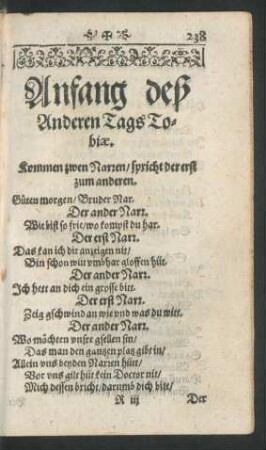 238
Anfang deß
Anderen Tags To-
biæ.
Kommen zwen Narren / spricht der erst
zum anderen.
Guͤten morgen / Bruder Nar.
Der ander Narr.
Wie bist so frië / wo kompst du har.
Der erst Narr.
Das kan ich dir anzeigen nit /
Bin schon win vmbhar gloffen hüt.
Der ander Narr.
Ich hett an dich ein grosse bitt.
Der erst Narr.
Zeig gschwind an wie vnd was du witt.
Der ander Narr.
Wo moͤchten vnsre gsellen sin /
Das man den gantzen platz gibt in /
Allein vns beyden Narren hütt /
Vor vns gilt hüt kein Doctor nit /
Mich dessen bricht / darumb dich bitt /
R iij Der